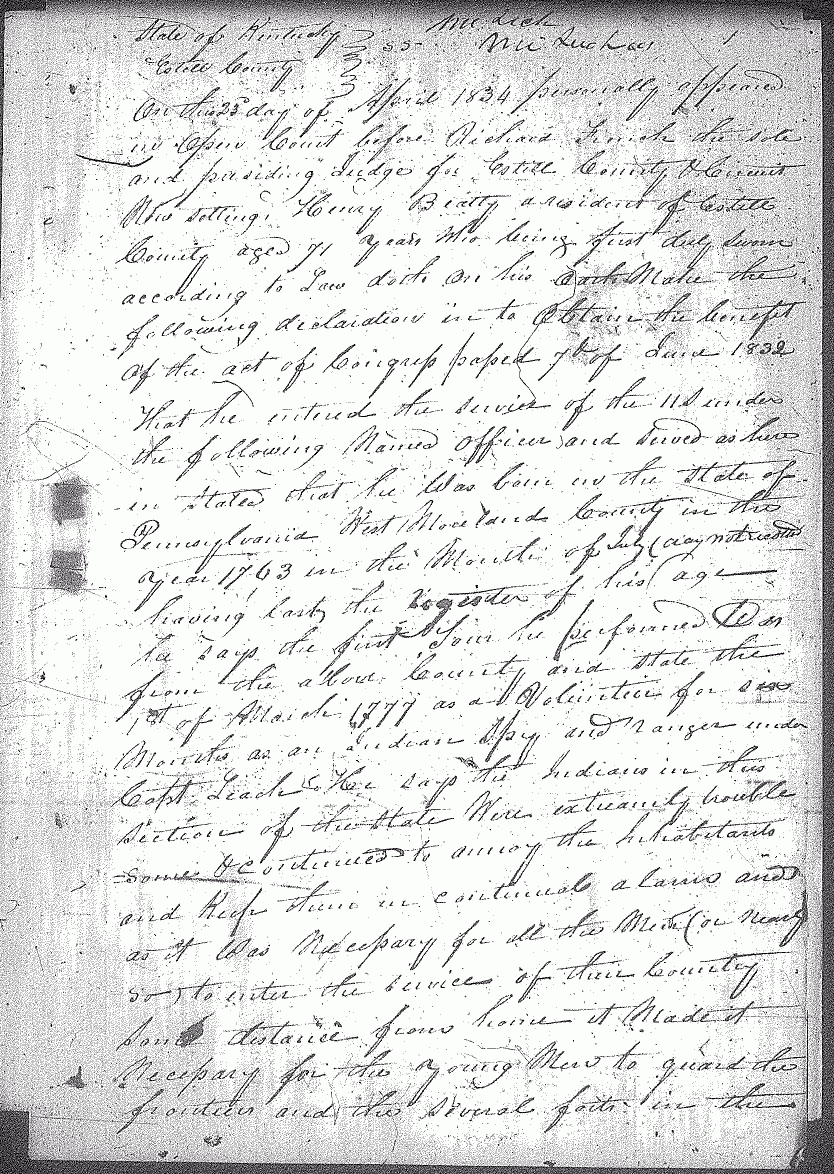 State of Kentucky ss 1
Estill County
On this 25th day of April 1834 personally appeared
in Open Court before Richard French the sole
and presiding Judge for Estill County & Circuit
Now setting, Henry Beatty a resident of Estill
County aged 71 years Who being first duly sworn
according to Law doth on his Oath Make the
following declaration in to Obtain the benefit
of the act of Congress passed 7th of June 1832
That he entered the service of the US under
the following Named officer and served as here
in stated that he Was born in the State of
Pennsylvania West Moreland County in the
year 1763 in the Month of July (day not
having lost the register of his age
he says the first Tour he performed Was
from the above County and state the
1st of March 1777 as a Volunteer for six
Months as an Indian Spy and ranger under
Capt. Leach. He says the Indians in this
section of the state Were extreamly trouble
some & continued to annoy the Inhabitants
and Keep them in continual alarm and
as it Was Necessary for all the Men (or nearly
so) to enter the service of their County
some distance from home it Made it
Necessary for the young Men to guard the
frontier and the several forts in the